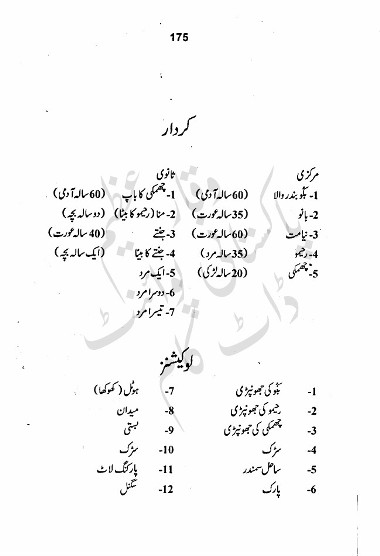 175
کردار
مرکزی ثانوی
1- بگو بندر والا (60 سالہ آدمی) 1- چھمکی کا باپ (60 سالہ آدمی)
2- بانو (35 سالہ عورت) 2- منا (رحیمو کا بیٹا) (دو سالہ بچہ)
3- نیامت (60 سالہ عورت) 3- جنتے (40 سالہ عورت)
4- رحیمو (35 سالہ مرد) 4- جنتے کا بیٹا (ایک سالہ بچہ)
5- چھمکی (20 سالہ لڑکی) 5- ایک مرد
6- دوسرا مرد
7- تیسرا مرد
لوکیشنز
1- بگو کی جھونپڑی 7- ہوٹل (کھوکھا)
2- رحیمو کی جھونپڑی 8- میدان
3- چھمکی کی جھونپڑی 9- بستی
4- سڑک 10- سڑک
5- ساحل سمندر 11- پارکنگ لاٹ
6- پارک 12- سگنل